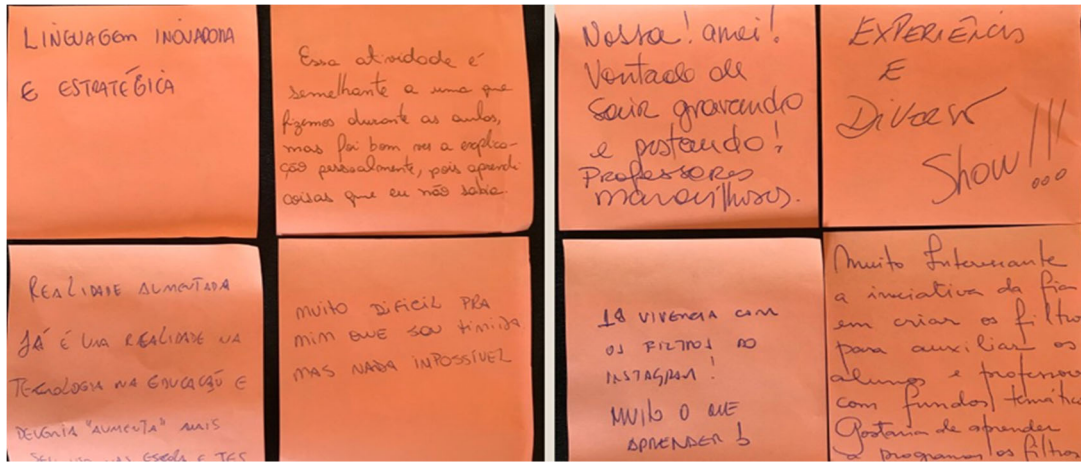 LINGUAGEM INOVADORA
E ESTRATÉGICA
Essa atividade é
semelhante a uma que
fizemos durante as aulas,
mas foi bom ver a explica-
ção pessoalmente, pois aprendi
coisas que eu não sabia.
Nossa! amei!
Vontade de
sair gravando
e postando!
Professores
maravilhosos.
EXPERIÊNCIS
E
DIVERSÃO
Show!!!
REALIDADE AUMENTADA
JÁ É UMA REALIDADE NA
TECNOLOGIA NA EDUCAÇÃO E
DEVERIA "AUMENTA" MAIS
NAS ESCOLA E
MUITO DIFICIL PRA
MIM QUE SOU TIMIDA
MAS NADA INPOSSÍVEL
1ª VIVENCIA COM
OS FILTROS DO
INSTAGRAM!
MUITO O QUE
APRENDER!
Muito Interessante
a iniciativa da
em criar os filtro
para auxiliar os
alunos e professor
com fundos temátic
Gostaria de aprender
a programar os filtros